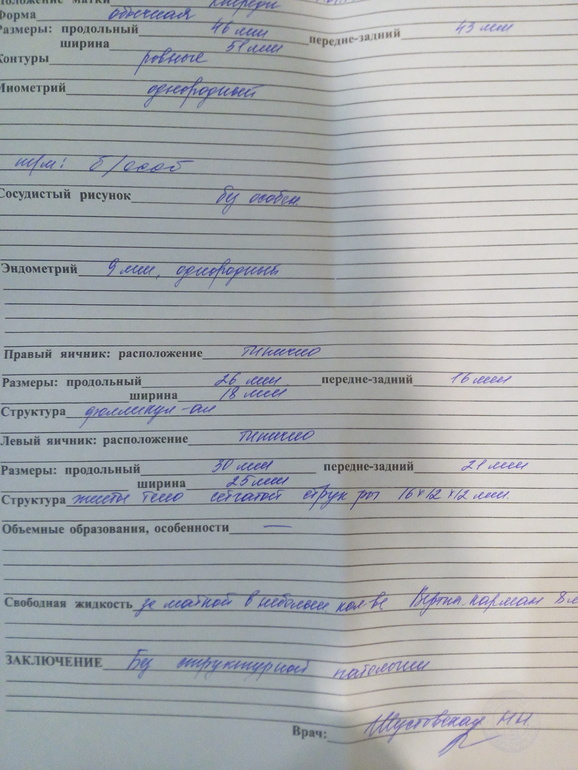 Положение матки кпереди
Форма обычная
Размеры: продольный 46 мм передне-задний 43 мм
ширина 51 мм
Контуры ровные
Миометрий однородный
ш/м: б/особ
Сосудистый рисунок без особен.
Эндометрий 9 мм, однородный
Правый яичник: расположение типично
Размеры: продольный 26 мм передне-задний 16 мм
ширина 18 мм
Структура фолликул-ая
Левый яичник: расположение типично
Размеры: продольный 30 мм передне-задний 21 мм
ширина 25 мм
Структура желтое тело сетчатой струк ры 16×12×12 мм.
Объемные образования, особенности —
Свободная жидкость за маткой в небольш кол-ве карман 8 м
ЗАКЛЮЧЕНИЕ Без структурной патологии
Врач: Шустовская Н.Н.